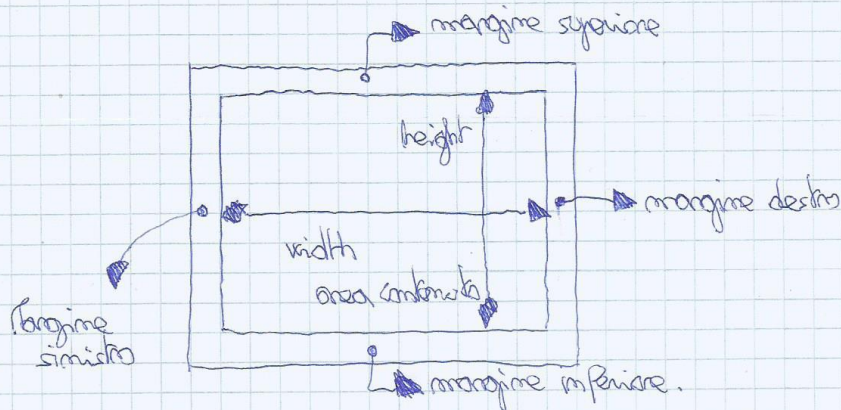 margine superiore
height
margine destro
width
area contenuto
margine
sinistro
margine inferiore.